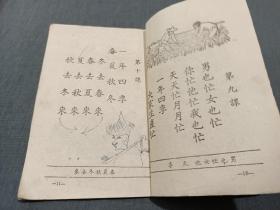 第九課
男也忙女也忙
你忙他忙我也忙
天天忙月月忙
一年四季
—10—
第十課
一年四季
春夏秋冬
冬去春來
春去夏來
夏去秋來
秋去冬來
來去冬秋夏春
—11—